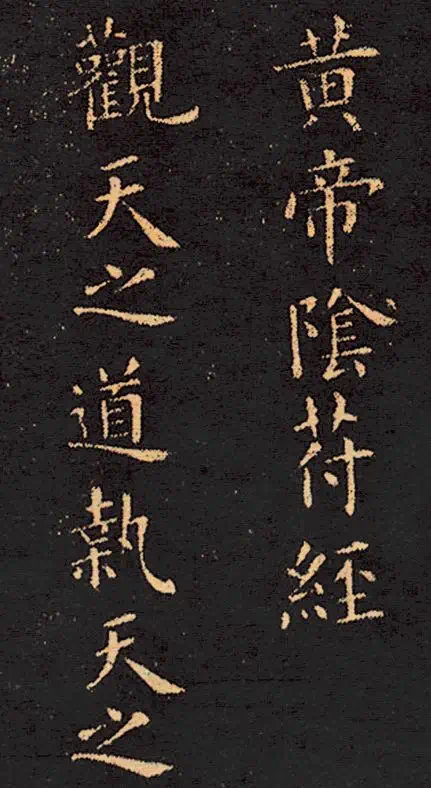 黃帝陰苻經
觀天之道執天之